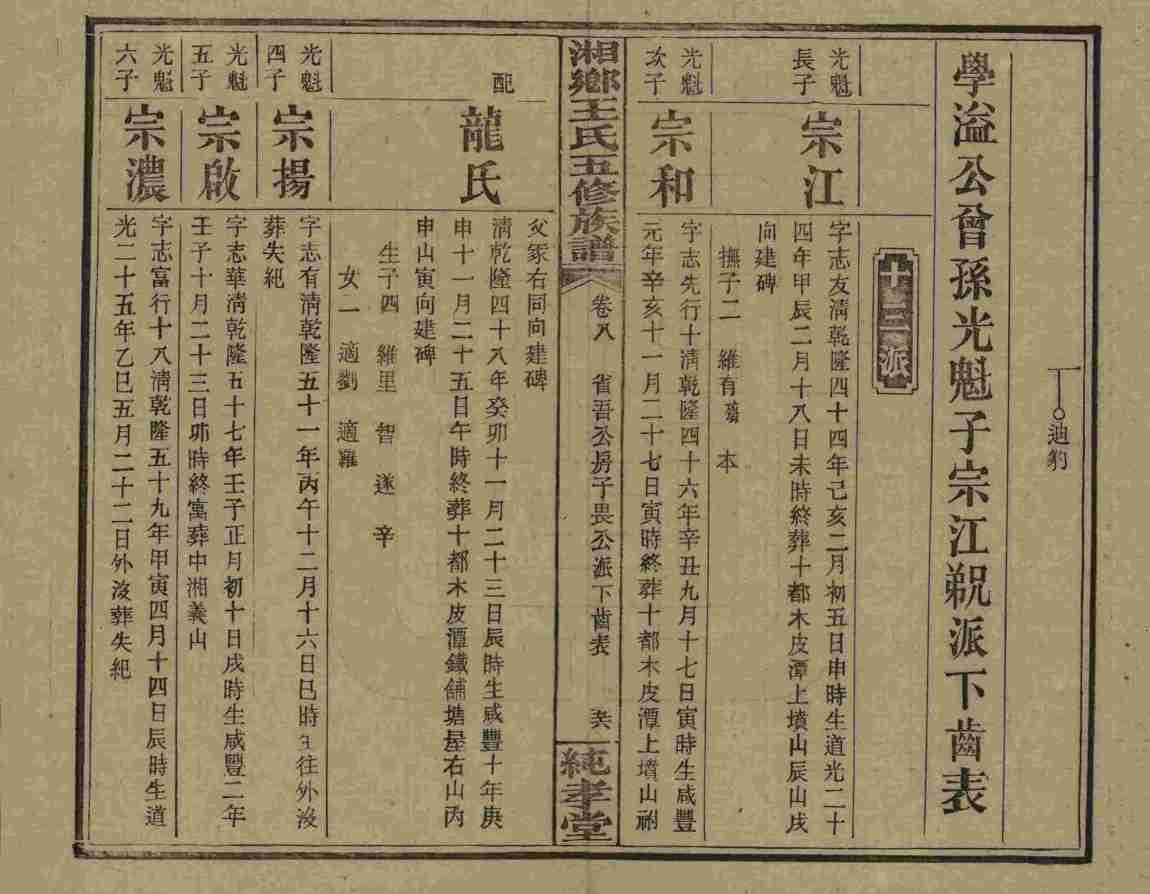 迪豹
學溢公曾孫光魁子宗江派下齒表
十三派
光魁
長子
宗江
字志友清乾隆四十四年己亥二月初五日申時生道光二十
四年甲辰二月十八日未時終葬十都木皮潭上墳山辰山戌
向建碑
撫子二 維有 本
光魁
次子
宗和
字志先行十清乾隆四十六年辛丑九月十七日寅時生咸豐
元年辛亥十一月二十七日寅時終葬十都木皮潭上墳山祔
湘鄉王氏五修族譜
卷八 省吾公房子畏公派下齒表
純孝堂
父冢右同向建碑
配
龍氏
清乾隆四十八年癸卯十一月二十三日辰時生咸豐十年庚
申十一月二十五日午時終葬十都木皮潭鐵鋪塘屋右山丙
申山寅向建碑
生子四 維里 智 遂 辛
女二 適劉 適羅
光魁
四子
宗揚
字志有清乾隆五十一年丙午十二月十六日巳時生往外沒
葬失紀
光魁
五子
宗啟
字志華清乾隆五十七年壬子正月初十日戌時生咸豐二年
壬子十月二十三日卯時終寓葬中湘義山
光魁
六子
宗濃
字志富行十八清乾隆五十九年甲寅四月十四日辰時生道
光二十五年乙巳五月二十二日外沒葬失紀